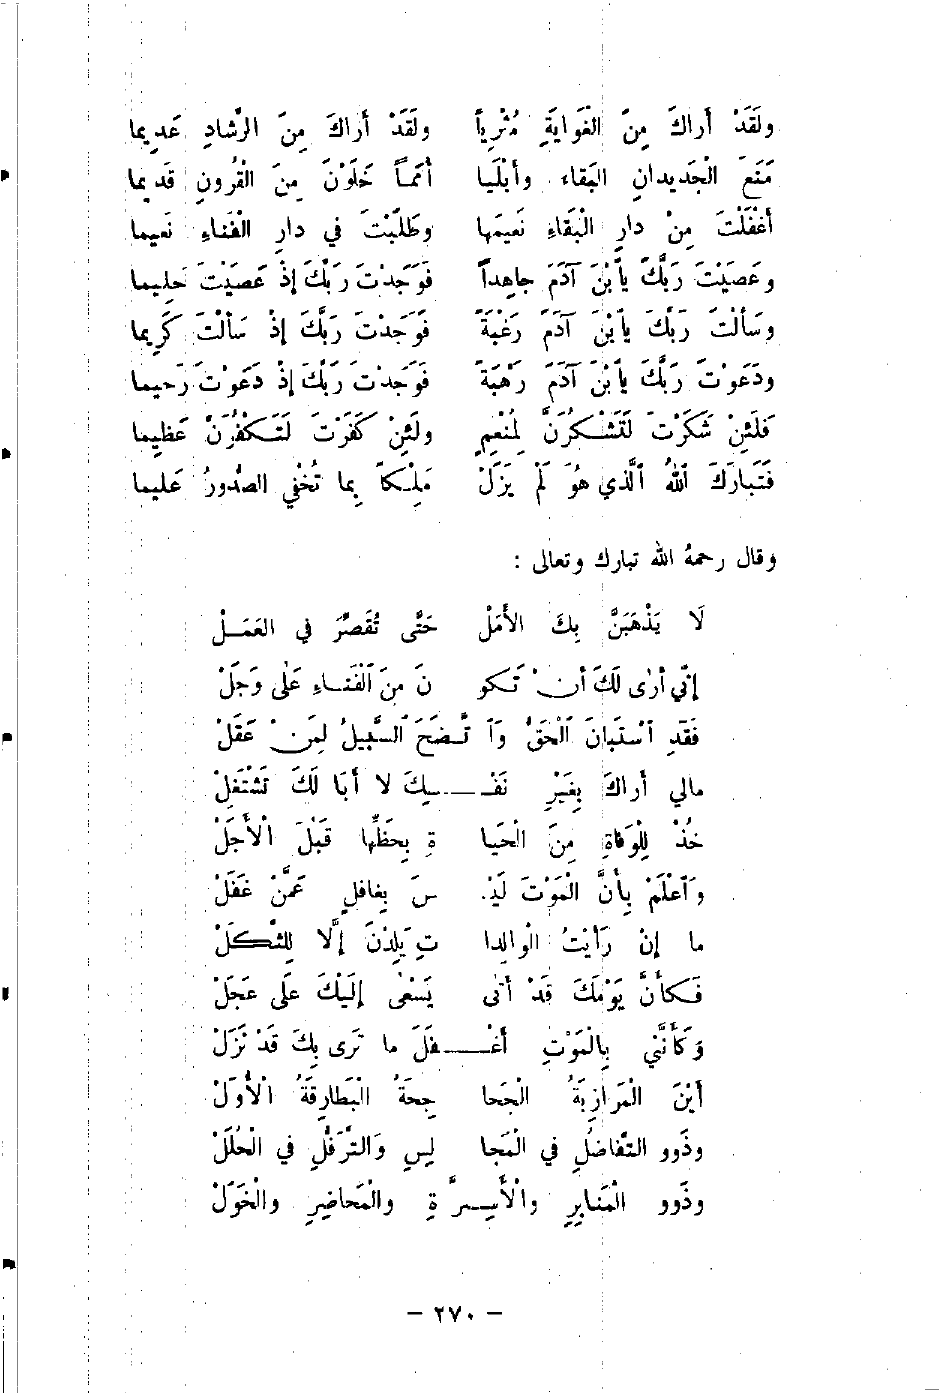 ولَقَدْ أَراكَ مِنَ الغَوايَةِ مُثْرِياً ولَقَدْ أَراكَ مِنَ الرَّشادِ عَديما
مَنَعَ الْجَديدانِ البَقاءَ وأَبْلَيا أُمَماً خَلَوْنَ مِنَ الْقُرونِ قَديما
أَغْفَلْتَ مِنْ دارِ الْبَقَاءِ نَعيمَها وطَلَبْتَ في دارِ الفَناءِ نَعيما
وعَصَيْتَ رَبَّكَ يا بْنَ آدَمَ جاهِداً فَوَجَدْتَ رَبَّكَ إذْ عَصَيْتَ حَليما
وسَأَلْتَ رَبَّكَ يا بْنَ آدَمَ رَغْبَةً فَوَجَدْتَ رَبَّكَ إذْ سَأَلْتَ كَرِيما
ودَعَوْتَ رَبَّكَ يا بْنَ آدَمَ رَهْبَةً فَوَجَدْتَ رَبَّكَ إذْ دَعَوْتَ رَحيما
فَلَئِنْ شَكَرْتَ لَتَشْكُرَنَّ لِمُنْعِمٍ ولَئِنْ كَفَرْتَ لَتَكْفُرَنَّ عَظِيما
فَتَبارَكَ ٱللهُ ٱلَّذي هُوَ لَمْ يَزَلْ مَلِكاً بِما تُخْفي الصُّدورُ عَليما
وقال رحمهُ الله تبارك وتعالى :
لَا يَذْهَبَنَّ بِكَ الأَمَلْ حَتَّى تُقَصِّرَ في العَمَلْ
إنِّي أَرَى لَكَ أَنْ تَكو نَ مِنَ ٱلْفَناءِ عَلَى وَجَلْ
فَقَدِ ٱسْتَبانَ ٱلْحَقُّ وَٱ تَّضَحَ ٱلسَّبيلُ لِمَنْ عَقَلْ
مالي أَراكَ بِغَيْرِ نَفْـ ـسِكَ لا أَبَا لَكَ تَشْتَغِلْ
خُذْ لِلْوَفاةِ مِنَ الْحَيا ةِ بِحَظِّها قَبْلَ الْأَجَلْ
وَٱعْلَمْ بِأَنَّ الْمَوْتَ لَيْـ ـسَ بِغافِلٍ عَمَّنْ غَفَلْ
ما إنْ رَأَيْتُ الْوالِدا تِ يَلِدْنَ إلَّا لِلثَّكَلْ
فَكأَنَّ يَوْمَكَ قَدْ أَتَى يَسْعَى إلَيْكَ عَلَى عَجَلْ
وَكأَنَّني بِالْمَوْتِ أَغْـ ـفَلَ ما تَرَى بِكَ قَدْ نَزَلْ
أَيْنَ الْمَرازِبَةُ الْجَحا جِحَةُ الْبَطارِقَةُ الْأُوَلْ
وذَوو التَّفاضُلِ في الْمَجا لِسِ وَالتَّرَفُّلِ في الْحُلَلْ
وذَوو الْمَنابِرِ والْأَسِرَّ ةِ والْمَحاضِرِ والْخَوَلْ
– ٢٧٠ –